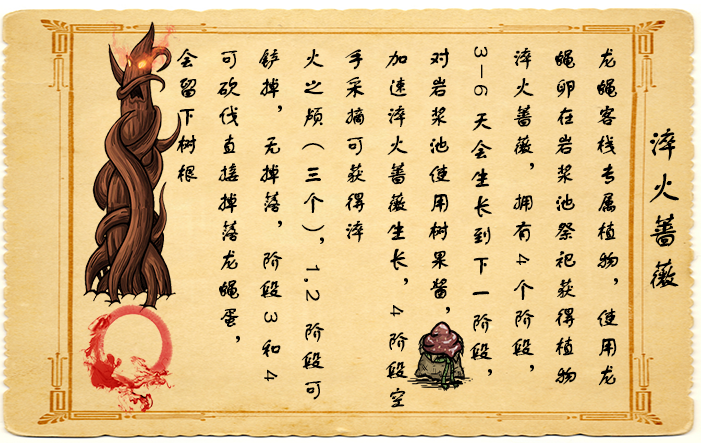 淬火蔷薇
龙蝇客栈专属植物，使用龙
蝇卵在岩浆池祭祀获得植物
淬火蔷薇，拥有4个阶段，
3-6天会生长到下一阶段，
对岩浆池使用树果酱，
加速淬火蔷薇生长，4阶段空
手采摘可获得淬
火之颅（三个），1,2阶段可
铲掉，无掉落，阶段3和4
可砍伐直接掉落龙蝇蛋，
会留下树根